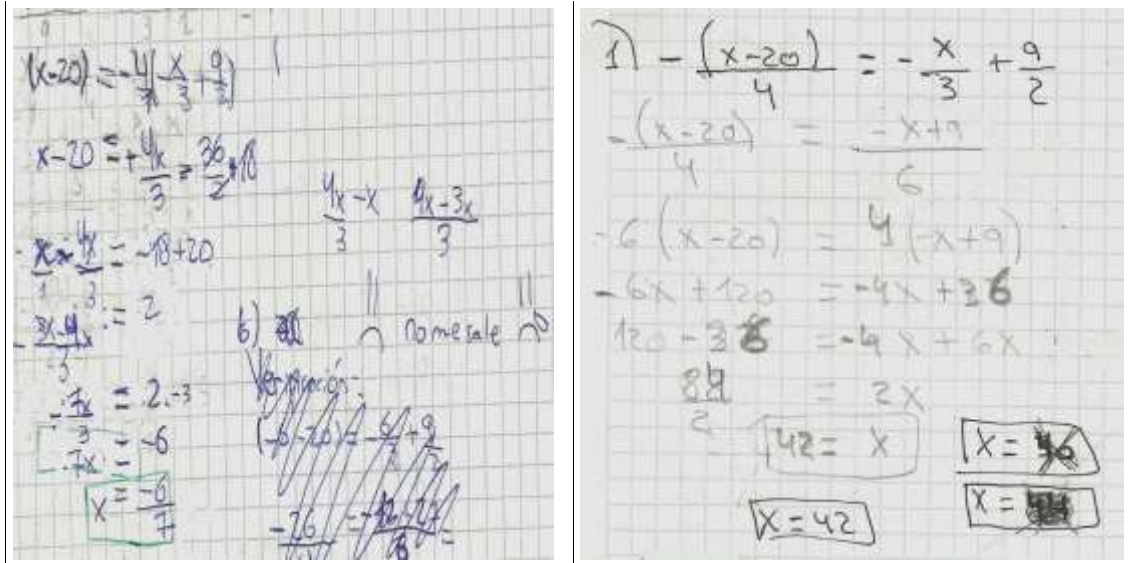 (x-20) = -4/3(-x/3+9/2)
x-20 = +4x/3 - 36/2 18
4x-x/3 4x-3x/3
x/1 - 4x/3 = -18+20
3x-4x/3 = 2
6) no me sale
Verificación:
-7x/3 = 2.-3
-7x = -6
x = -6/7
(-6-20) = -6/ + 9/
-26 = -12+27/6 =
1) -(x-20)/4 = -x/3 + 9/2
-(x-20)/4 = -x+9/6
-6(x-20) = 4(-x+9)
-6x+120 = -4x+36
120-36 = -4x+6x
84/2 = 2x
42 = x
x =
x = 42
x =